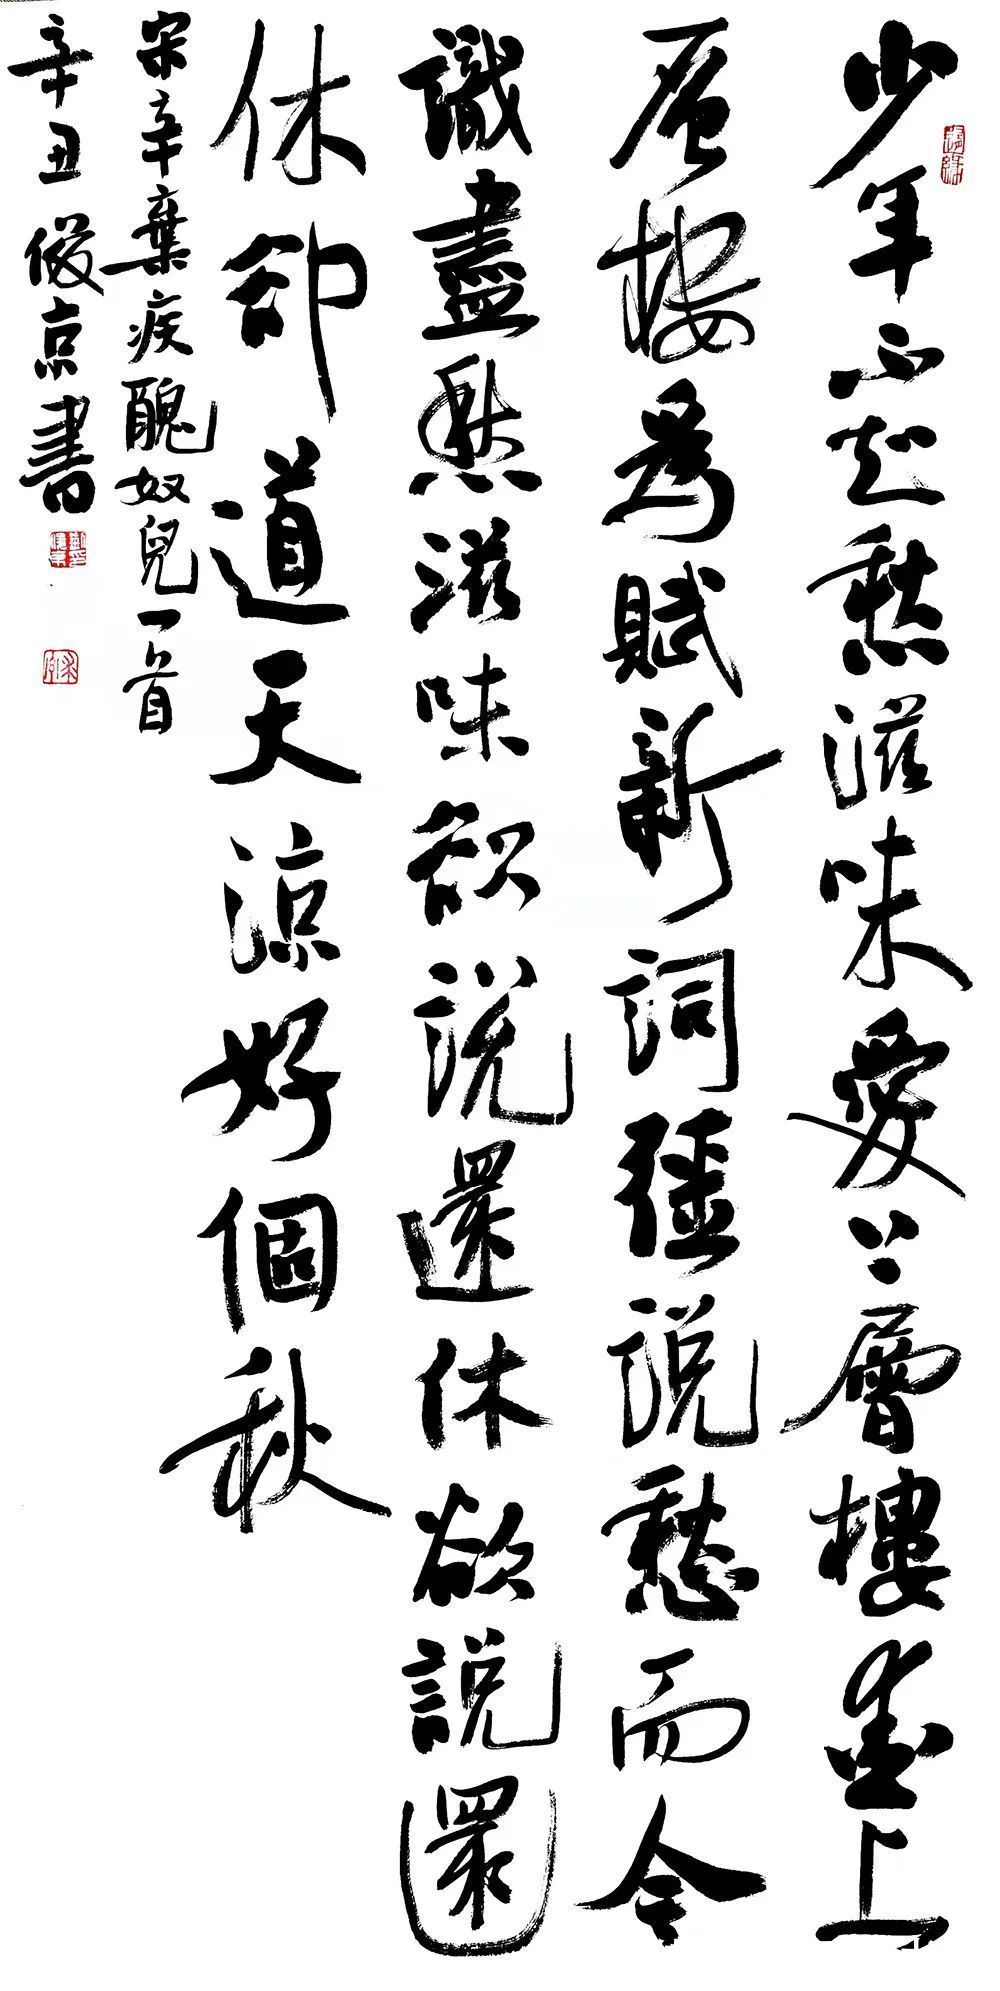 少年不知愁滋味愛上層樓愛上
層樓為賦新詞彊說愁而今
識盡愁滋味欲說還休欲說還
休卻道天涼好個秋
宋辛棄疾醜奴兒一首
辛丑俊京書